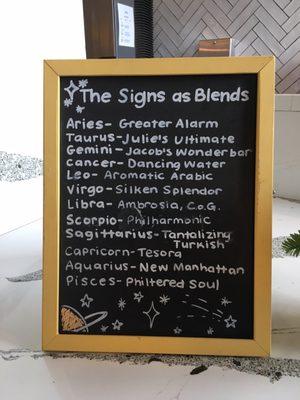 The Signs as Blends
Aries- Greater Alarm
Taurus- Julie's Ultimate
Gemini- Jacob's Wonderbar
Cancer- Dancing Water
Leo- Aromatic Arabic
Virgo- Silken Splendor
Libra- Ambrosia, C.o.G.
Scorpio- Philharmonic
Sagittarius- Tantalizing
Turkish
Capricorn- Tesora
Aquarius- New Manhattan
Pisces- Philtered Soul